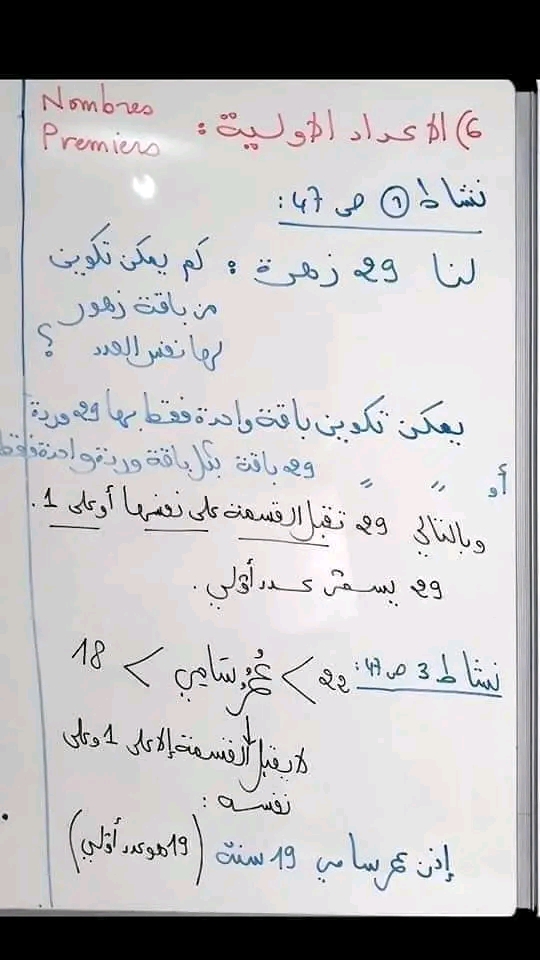 6) الاعداد الاولية :
Nombres
Premiers
نشاط 1 ص 47 :
لنا 29 زهرة : كم يمكن تكوين
من باقة زهور
لها نفس العدد ؟
يمكن تكوين باقة واحدة فقط بها 29 وردة
أو " " 29 باقة بكل باقة وردة واحدة فقط
وبالتالي 29 تقبل القسمة على نفسها أو على 1 .
29 يسمى عدد أولي .
نشاط 3 ص 47 : 22 > عُمُرُ سَامِي > 18
لا يقبل القسمة إلا على 1 وعلى
نفسه :
إذن عمر سامي 19 سنة (19 هو عدد أولي)